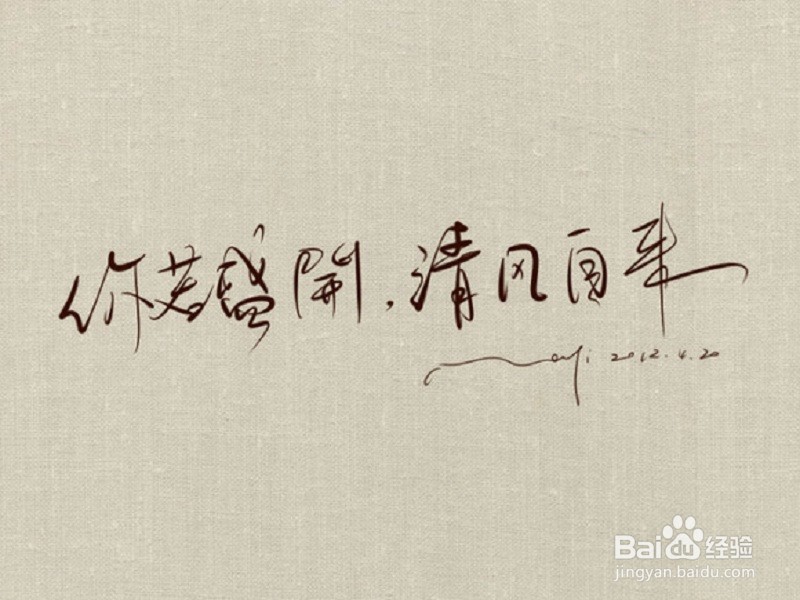 你若盛開，清风自来
2012.4.20
Bai du 经验
jingyan.baidu.com